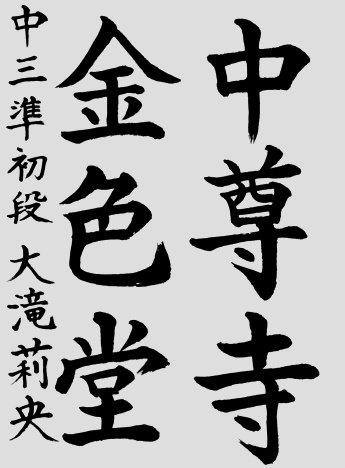 中尊寺
金色堂
中三準初段 大滝莉央